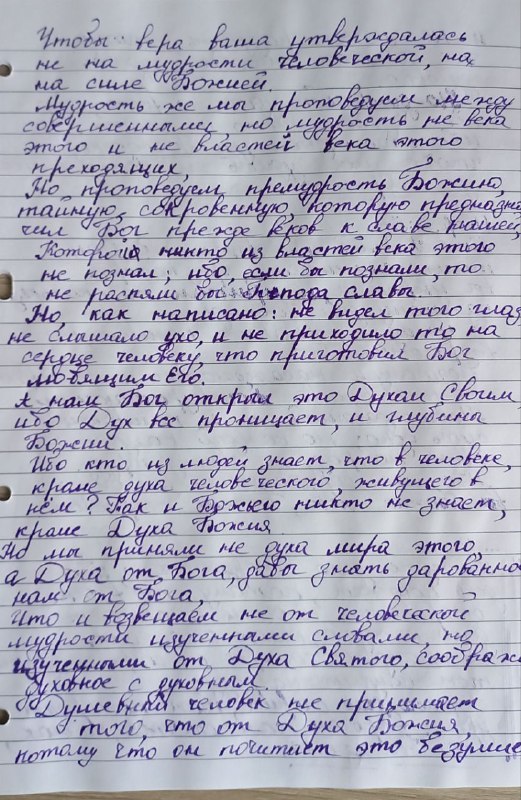 Чтобы вера ваша утверждалась
не на мудрости человеческой, на
на силе Божией.
Мудрость же мы проповедуем между
совершенными, но мудрость не века
этого и не властей века этого
преходящих,
Но проповедуем премудрость Божию,
тайную, сокровенную, которую предназна
чил Бог прежде веков к славе нашей,
Которой никто из властей века этого
не познал; ибо, если бы познали, то
не распяли бы Господа славы.
Но, как написано: не видел того глаз
не слышало ухо, и не приходило то на
сердце человеку, что приготовил Бог
любящим Его.
А нам Бог открыл это Духом Своим
ибо Дух все проницает, и глубины
Божии.
Ибо кто из людей знает, что в человеке,
кроме духа человеческого, живущего в
нём? Так и Божьего никто не знает,
кроме Духа Божия
Но мы приняли не духа мира этого,
а Духа от Бога, дабы знать дарованное
нам от Бога,
Что и возвещаем не от человеческой
мудрости изученными словами, но
изученными от Духа Святого, соображ
духовное с духовным.
Душевный человек не принимает
того, что от Духа Божия,
потому что он почитает это безумие